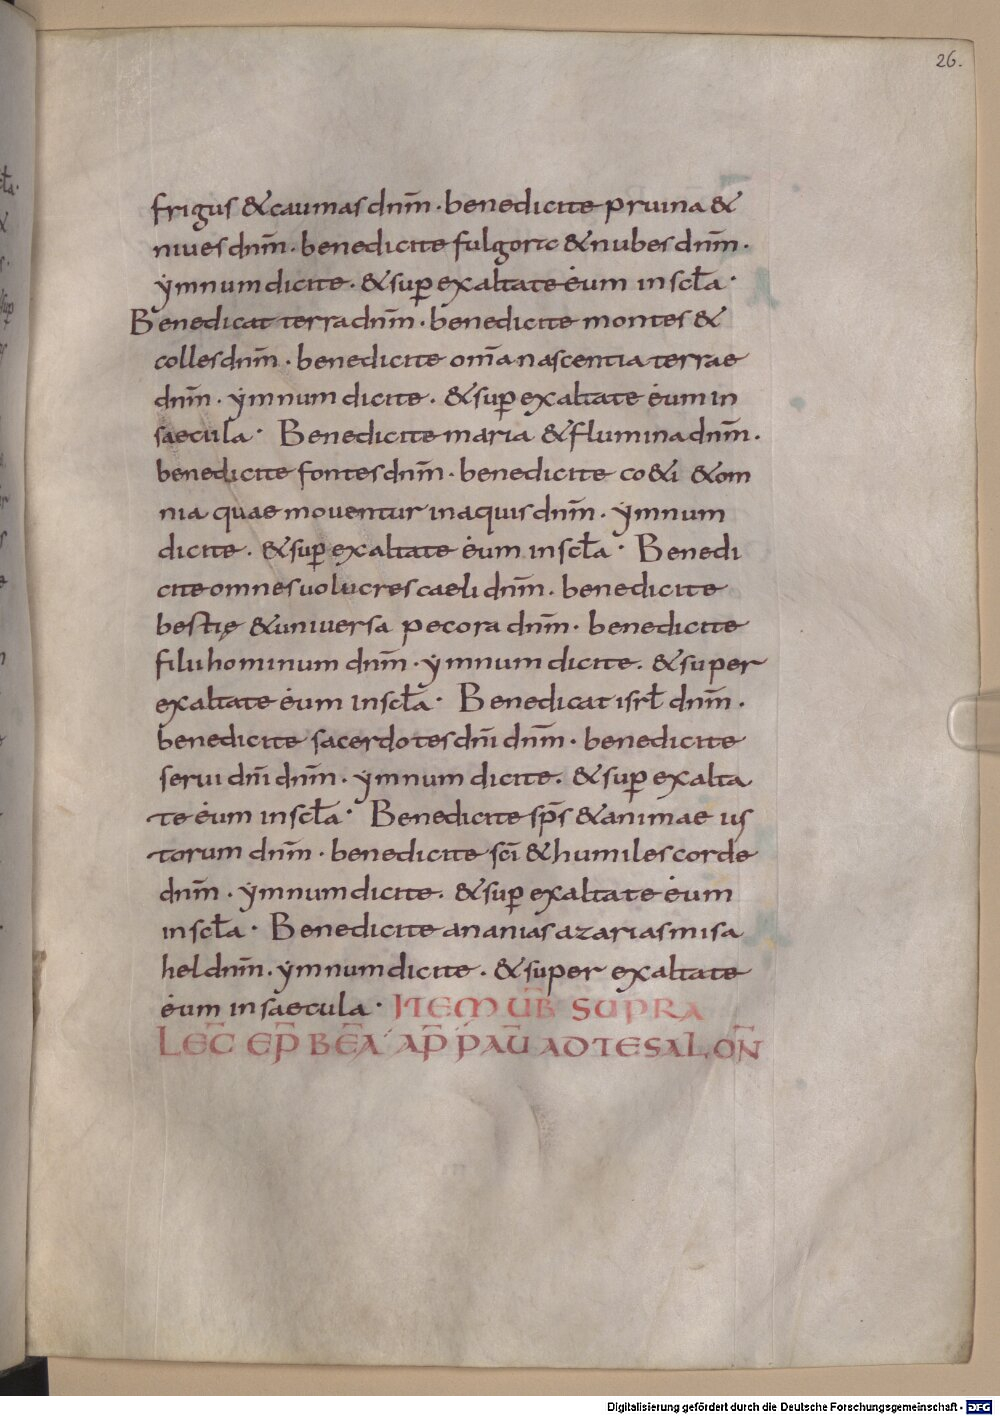 26.
frigus & caumas dnm̄ · benedicite pruina &
niues dnm̄ · benedicite fulgora & nubes dnm̄ ·
ẏmnum dicite · & sup̲ exaltate eum in scła ·
Benedicat terra dnm̄ · benedicite montes &
colles dnm̄ · benedicite om̄a nascentia terrae
dnm̄ · ẏmnum dicite · & sup̲ exaltate eum in
saecula · Benedicite maria & flumina dnm̄ ·
benedicite fontes dnm̄ · benedicite co&i & om
nia quae moventur in aquis dnm̄ · ẏmnum
dicite · & sup̲ exaltate eum in scła · Benedi
cite omnes uolucres caeli dnm̄ · benedicite
bestię & universa pecora dnm̄ · benedicite
filii hominum dnm̄ · ẏmnum dicite · & super
exaltate eum in scła · Benedicat isrł dnm̄ ·
benedicite sacerdotes dnī dnm̄ · benedicite
serui dnī dnm̄ · ẏmnum dicite · & sup̲ exalta
te eum in scła · Benedicite sp̄s & animae ius
torum dnm̄ · benedicite scī & humiles corde
dnm̄ · ẏmnum dicite · & sup̲ exaltate eum
in scła · Benedicite ananias azarias misa
hel dnm̄ · ẏmnum dicite · & super exaltate
eum in saecula · ITEM UB̄ SUPRA
LEC̄ EP̄ BĒA AP̄ PAŪ AD TESALON̄
Digitalisierung gefördert durch die Deutsche Forschungsgemeinschaft - DFG